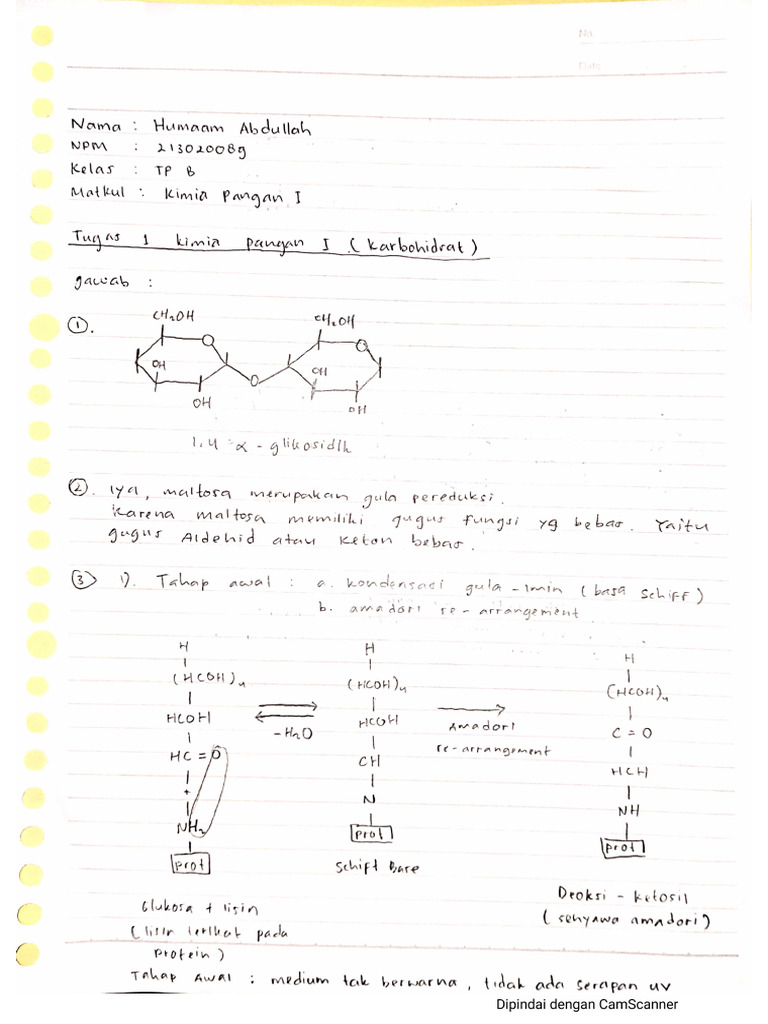 No.
Date
Nama : Humaam Abdullah
NPM : 213020089
Kelas : TP B
Matkul : Kimia Pangan I
Tugas 1 kimia pangan I (Karbohidrat)
Jawab :
①.
CH₂OH CH₂OH
O O
OH OH
O
OH OH
1,4 α - glikosidik
②. Iya, maltosa merupakan gula pereduksi.
Karena maltosa memiliki gugus fungsi yg bebas. Yaitu
gugus Aldehid atau Keton bebas.
③ 1). Tahap awal : a. kondensasi gula - imin (basa schiff)
b. amadori re-arrangement
H H H
(HCOH)₄ (HCOH)₄ (HCOH)₄
HCOH HCOH C = O
-H₂O Amadori
re-arrangement
HC = O CH HCH
+
NH₂ N NH
prot prot prot
Schift Base
Glukosa + lisin
(lisin terikat pada
protein)
Deoksi - ketosil
(senyawa amadori)
Tahap Awal : medium tak berwarna, tidak ada serapan uv
Dipindai dengan CamScanner